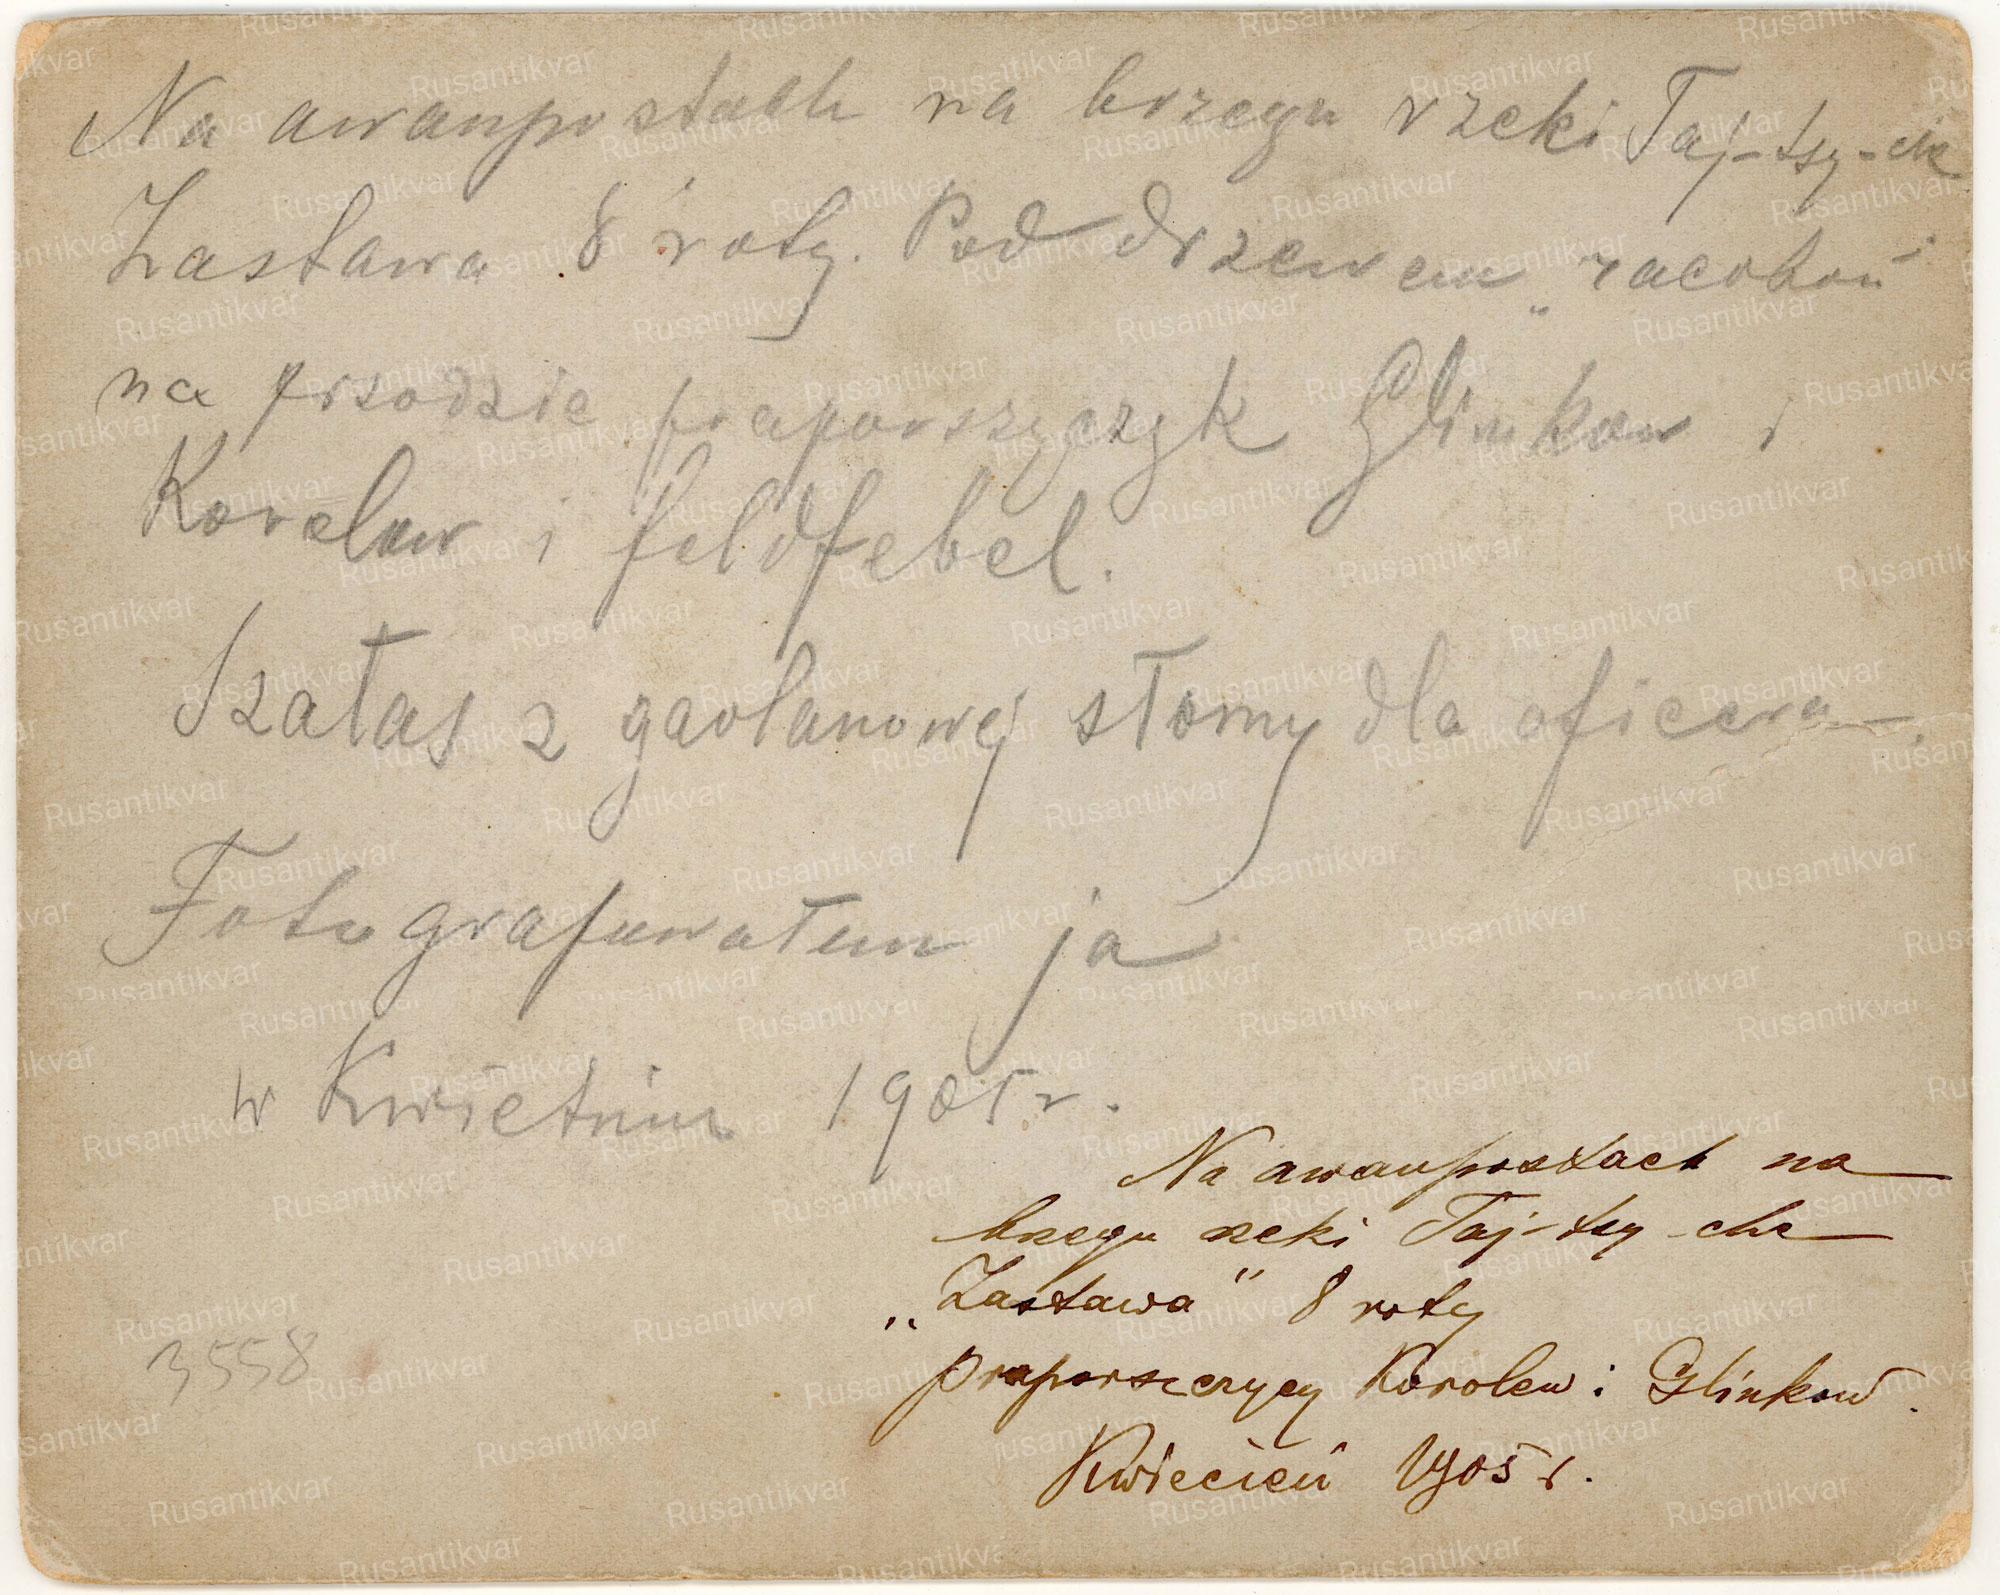 Na awanpostach na brzegu rzeki Taj-tsy-che
Zastawa 8 roty. Pod drzewem
na przodzie praporszczyk Glinkow i
Korolew i feldfebel.
Szałas z gaolanowej słomy dla oficera.
Fotografowałem ja
w Kwietniu 1905 r.
Na awanpostach na
brzegu rzeki Taj-tsy-che
„Zastawa" 8 roty
praporszczycy Korolew i Glinkow.
Kwiecień 1905 r.
3558
Rusantikvar